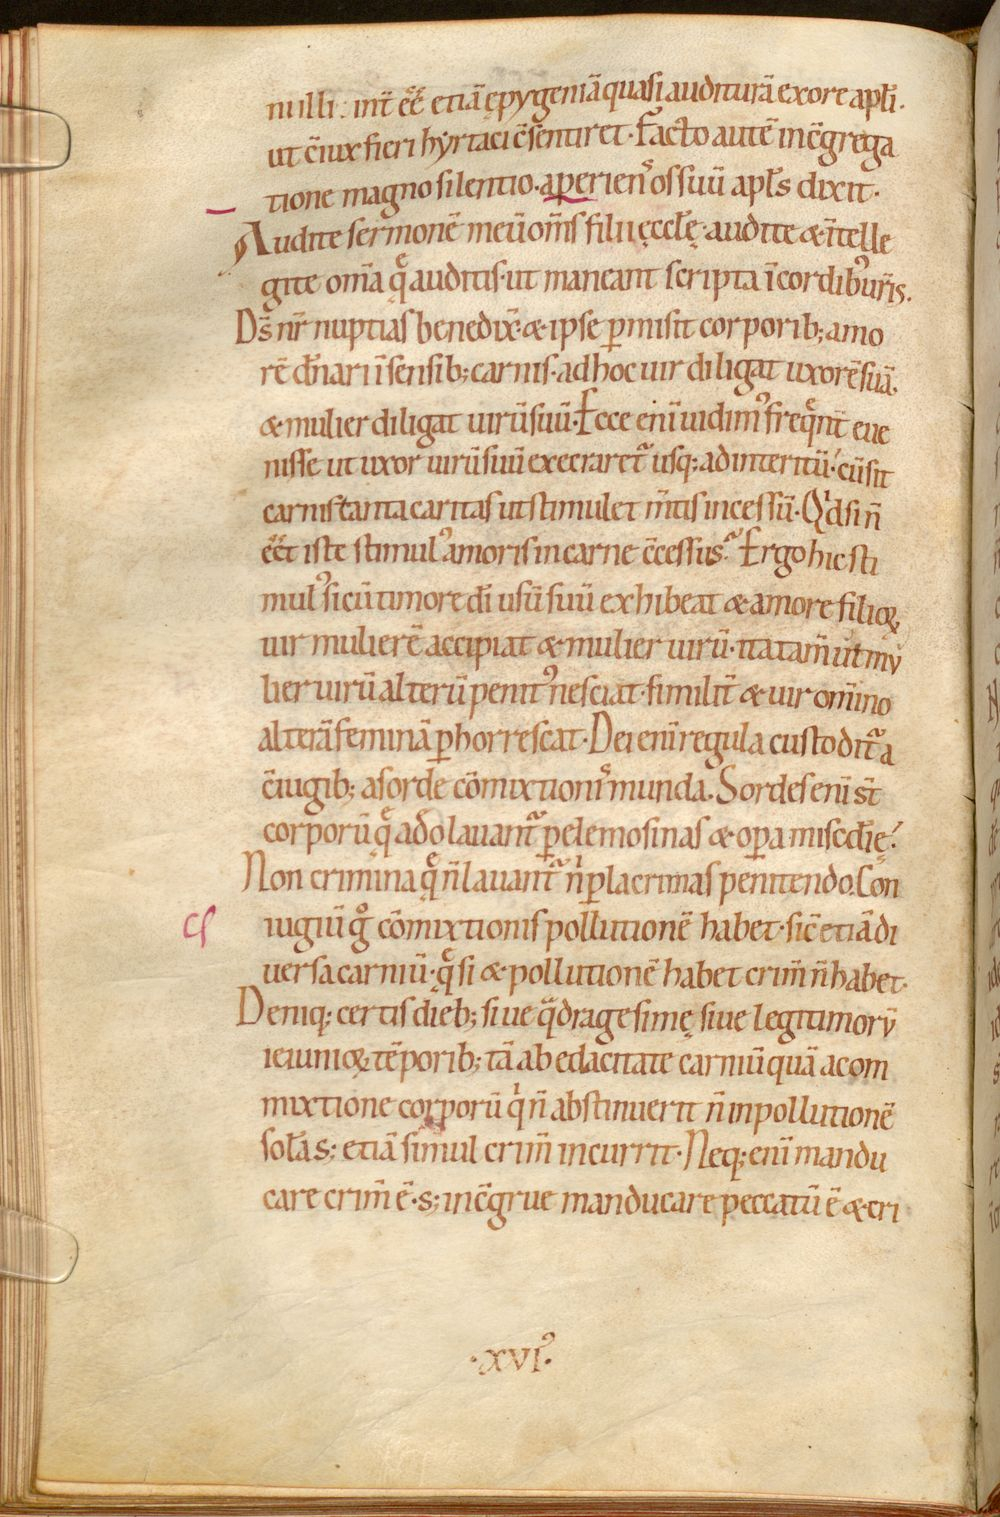 nulli: int̄ eē̄ etiā ępygeniā quasi auditurā ex ore apłi.
ut c̄iux fieri hyrtaci c̄sentiret. Facto autē in c̄grega
tione magno silentio. aperienˢ os suū apłs dixit.
Audite sermonē meū om̄s filii ęccłę. audite & īntelle
gite om̄a q̄ auditis. ut maneant scripta ī cordibꝰ ur̄is.
Dn̄s nr̄ nuptias benedix̄. & ipse ꝑmisit corporib; amo
rē dn̄ari ī sensib; carnis. ad hoc uir diligat uxorē suā.
& mulier diligat uirū suū. Ecce eni uidimꝰ freq̄nt̄ eue
nisse ut uxor uirū suū execraret᷑ usq; ad interitū. cū sit
carnis tanta caritas ut stimulet m̄tis incessū. Qd si n̄
eēt iste stimulꝰ amoris in carne c̄cessus. Ergo hic sti
mulꝰ sic cū timore dī usū suū exhibeat & amore filioꝝ
uir mulierē accipiat & mulier uirū. ita tam̄ ut mu
lier uirū alterū penitꝰ nesciat. similit̄ & uir om̄ino
alterā feminā ꝑhorrescat. Dei eni regula custodit᷑ a
c̄iugib; a sorde cōmixtionis munda. Sordes eni st̄
corporū q̄ a dō lauant᷑ ꝑ elemosinas & oꝑa misc̄dię.
Non crimina q̄ n̄ lauant᷑ n̄ ꝑ lacrimas penitendo. Con
iugiū gͦ cōmixtionis pollutionē habet. sic̄ etiā di
uersa carniū. q̄ si & pollutionē habet crim̄ n̄ habet.
Deniq; certis dieb; siue q̄dragesimę siue legitimorū
ieiunioꝝ tēporib; tā ab edacitate carniū quā a com
mixtione corporū qⁱ n̄ abstinuerit n̄ in pollutionē
solā s; etiā simul crim̄ incurrit. Neq; eni mandu
care crim̄ ē. s; inc̄grue manducare peccatū ē & cri
.XVIꝰ.